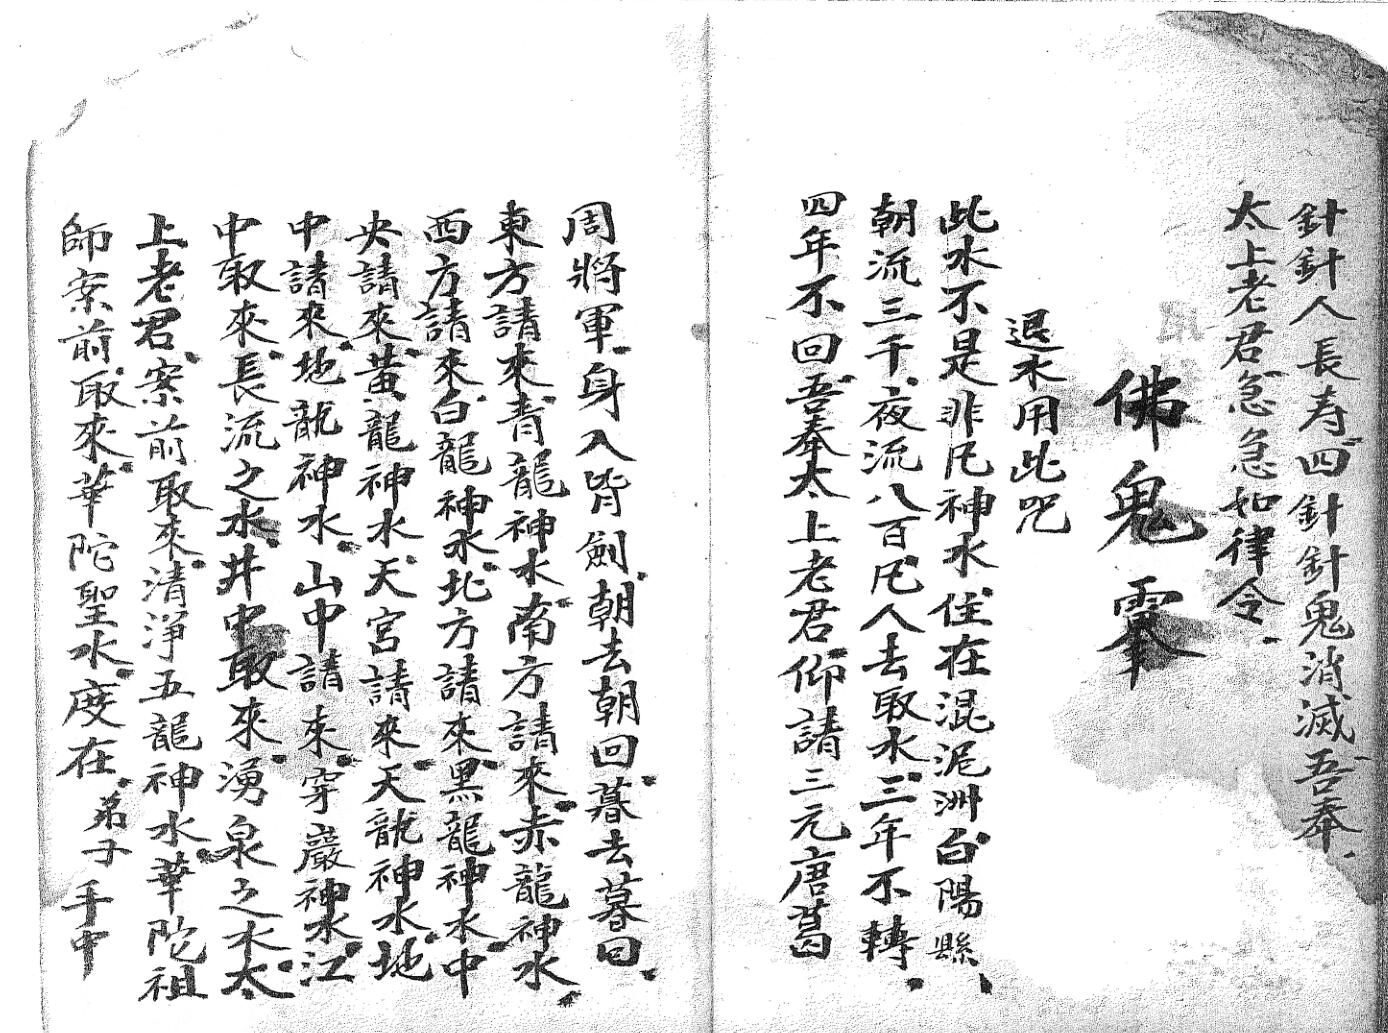 針針人長寿四針針鬼消滅吾奉
太上老君急急如律令
佛鬼
退水用此咒
此水不是非凡神水住在混泥洲白陽縣
朝流三千夜流八百凡人去取水三年不轉
四年不回吾奉太上老君仰請三元唐葛
周將軍身入皆劍朝去朝回暮去暮回
東方請來青龍神水南方請來赤龍神水
西方請來白龍神水北方請來黑龍神水中
央請來黃龍神水天宮請來天龍神水地
中請來地龍神水山中請來穿巖神水江
中取來長流之水井中取來湧泉之水太
上老君案前取來清淨五龍神水華陀祖
師案前取來華陀聖水度在弟子手中